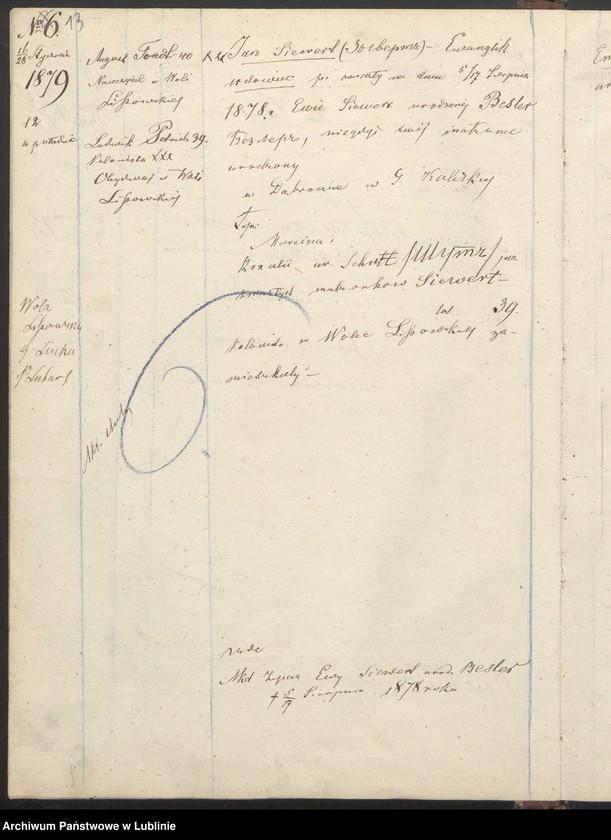 № 6. 13
16/28 Stycznia
1879
12
w południe
Wola
Lipowska
August Fondt 40
Nauczyciel w Woli
Lipowskiej
Ludwik 39.
Kolonista XXX
w Woli
Lipowskiej
XX Jan Siewert (Зигвертъ) – Ewangelik
wdowiec po zmarłej na dniu 5/17 Sierpnia
1878 r. Ewie Siewert urodzonej Besler
Безлеръ,
urodzony
w Dąbrowie w G Kaliskiej
Syn
Marcina i
Rozalii ur. Schutt /Шутъ/ już
zmarłych małżonków Siewert –
lat 39.
Kolonista w Wolce Lipowskiej za-
mieszkały –
Akt Zejścia Ewy Siewert urod. Besler
† 5/17 Sierpnia 1878 roku
Archiwum Państwowe w Lublinie